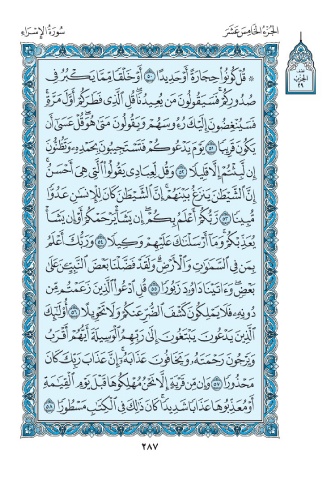 الجزء الخامس عشر
سورة الإسراء
الحزب
٢٩
۞ قُلْ كُونُوا۟ حِجَارَةً أَوْ حَدِيدًا ٥٠ أَوْ خَلْقًا مِّمَّا يَكْبُرُ فِى
صُدُورِكُمْ ۚ فَسَيَقُولُونَ مَن يُعِيدُنَا ۖ قُلِ ٱلَّذِى فَطَرَكُمْ أَوَّلَ مَرَّةٍ ۚ
فَسَيُنْغِضُونَ إِلَيْكَ رُءُوسَهُمْ وَيَقُولُونَ مَتَىٰ هُوَ ۖ قُلْ عَسَىٰٓ أَن
يَكُونَ قَرِيبًا ٥١ يَوْمَ يَدْعُوكُمْ فَتَسْتَجِيبُونَ بِحَمْدِهِۦ وَتَظُنُّونَ
إِن لَّبِثْتُمْ إِلَّا قَلِيلًا ٥٢ وَقُل لِّعِبَادِى يَقُولُوا۟ ٱلَّتِى هِىَ أَحْسَنُ ۚ
إِنَّ ٱلشَّيْطَٰنَ يَنزَغُ بَيْنَهُمْ ۚ إِنَّ ٱلشَّيْطَٰنَ كَانَ لِلْإِنسَٰنِ عَدُوًّا
مُّبِينًا ٥٣ رَّبُّكُمْ أَعْلَمُ بِكُمْ ۖ إِن يَشَأْ يَرْحَمْكُمْ أَوْ إِن يَشَأْ
يُعَذِّبْكُمْ ۚ وَمَآ أَرْسَلْنَٰكَ عَلَيْهِمْ وَكِيلًا ٥٤ وَرَبُّكَ أَعْلَمُ
بِمَن فِى ٱلسَّمَٰوَٰتِ وَٱلْأَرْضِ ۗ وَلَقَدْ فَضَّلْنَا بَعْضَ ٱلنَّبِيِّـۧنَ عَلَىٰ
بَعْضٍ ۖ وَءَاتَيْنَا دَاوُۥدَ زَبُورًا ٥٥ قُلِ ٱدْعُوا۟ ٱلَّذِينَ زَعَمْتُم مِّن
دُونِهِۦ فَلَا يَمْلِكُونَ كَشْفَ ٱلضُّرِّ عَنكُمْ وَلَا تَحْوِيلًا ٥٦ أُو۟لَٰٓئِكَ
ٱلَّذِينَ يَدْعُونَ يَبْتَغُونَ إِلَىٰ رَبِّهِمُ ٱلْوَسِيلَةَ أَيُّهُمْ أَقْرَبُ
وَيَرْجُونَ رَحْمَتَهُۥ وَيَخَافُونَ عَذَابَهُۥٓ ۚ إِنَّ عَذَابَ رَبِّكَ كَانَ
مَحْذُورًا ٥٧ وَإِن مِّن قَرْيَةٍ إِلَّا نَحْنُ مُهْلِكُوهَا قَبْلَ يَوْمِ ٱلْقِيَٰمَةِ
أَوْ مُعَذِّبُوهَا عَذَابًا شَدِيدًا ۚ كَانَ ذَٰلِكَ فِى ٱلْكِتَٰبِ مَسْطُورًا ٥٨
٢٨٧